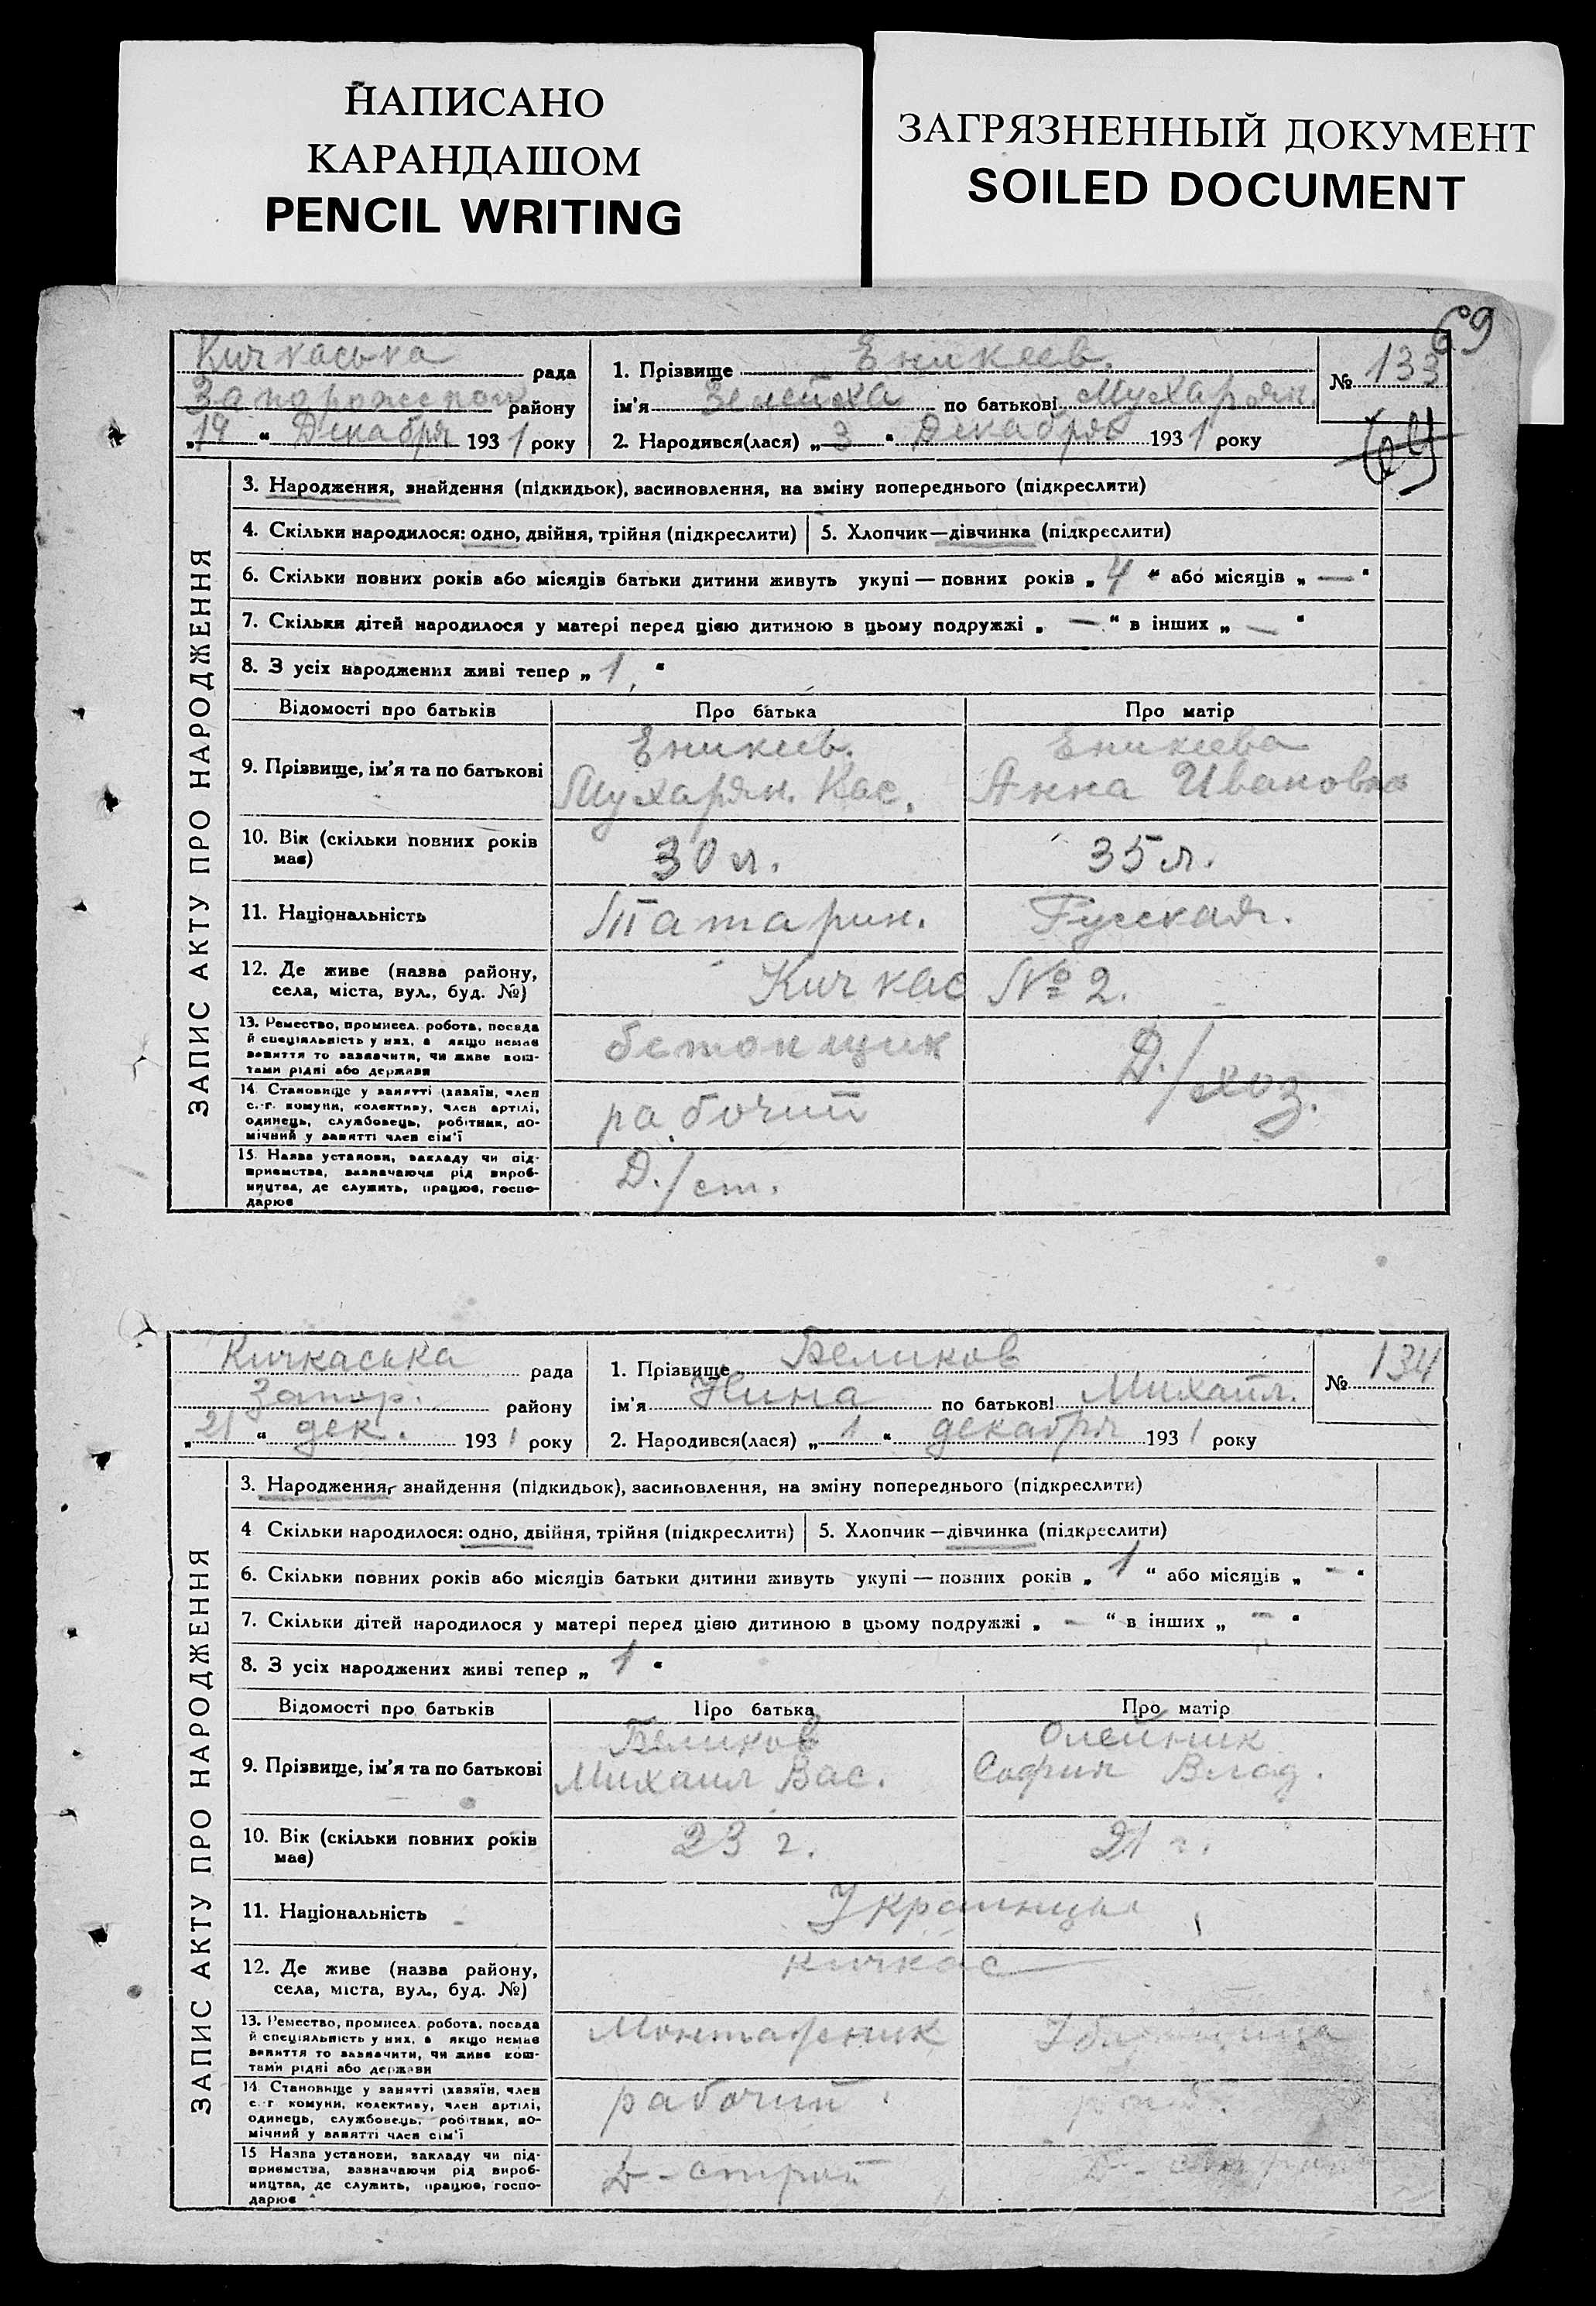 НАПИСАНО
КАРАНДАШОМ
PENCIL WRITING
ЗАГРЯЗНЕННЫЙ ДОКУМЕНТ
SOILED DOCUMENT
69
Кичкаська рада
района
„19“ Декабря 1931 року
1. Прізвище Еникеев.
ім'я по батькові Мухарям.
2. Народився(лася) „3“ Декабря 1931 року
№ 133
64
ЗАПИС АКТУ ПРО НАРОДЖЕННЯ
3. Народження, знайдення (підкидьок), засиновлення, на зміну попереднього (підкреслити)
4. Скільки народилося: одно, двійня, трійня (підкреслити) 5. Хлопчик—дівчинка (підкреслити)
6. Скільки повних років або місяців батьки дитини живуть укупі — повних років „4“ або місяців „—“
7. Скільки дітей народилося у матері перед цією дитиною в цьому подружжі „—“ в інших „—“
8. З усіх народжених живі тепер „1“
Відомості про батьків Про батька Про матір
9. Прізвище, ім'я та по батькові
Еникеев. Мухарям. Кас.
Еникеева Анна Ивановна
10. Вік (скільки повних років має)
30 л. 35 л.
11. Національність Татарин. Русская.
12. Де живе (назва району, села, міста, вул., буд. №)
Кичкас № 2.
13. Ремество, промисел, робота, посада
й спеціяльність у них, а якщо немає
заняття то зазначити, чи живе кош-
тами рідні або держави
бетонщик Д./хоз.
14. Становище у занятті (хазяїн, член
с.-г. комуни, колективу, член артілі,
одинець, службовець, робітник, по-
мічний у занятті член сім'ї
рабочий
15. Назва установи, закладу чи під-
приємства, зазначаючи рід вироб-
ництва, де служить, працює, госпо-
дарює
Д./ст.
Кичкаська рада
Запор. району
„21“ дек. 1931 року
1. Прізвище Великов
ім'я Нина по батькові Михайл.
2. Народився(лася) „1“ декабря 1931 року
№ 134
ЗАПИС АКТУ ПРО НАРОДЖЕННЯ
3. Народження, знайдення (підкидьок), засиновлення, на зміну попереднього (підкреслити)
4 Скільки народилося: одно, двійня, трійня (підкреслити) 5. Хлопчик—дівчинка (підкреслити)
6. Скільки повних років або місяців батьки дитини живуть укупі — повних років „1“ або місяців „-“
7. Скільки дітей народилося у матері перед цією дитиною в цьому подружжі „-“ в інших „-“
8. З усіх народжених живі тепер „1“
Відомості про батьків Про батька Про матір
9. Прізвище, ім'я та по батькові
Великов Михаил Вас.
Олейник София Влад.
10. Вік (скільки повних років має)
23 г. 21 г.
11. Національність Украинцы
12. Де живе (назва району, села, міста, вул., буд. №)
Кичкас
13. Ремество, промисел, робота, посада
й спеціяльність у них, а якщо немає
заняття то зазначити, чи живе кош-
тами рідні або держави
14. Становище у занятті (хазяїн, член
с.-г. комуни, колективу, член артілі,
одинець, службовець, робітник, по-
мічний у занятті член сім'ї
рабочий
15 Назва установи, закладу чи під-
приємства, зазначаючи рід вироб-
ництва, де служить, працює, госпо-
дарює
Д-строй Д-строй